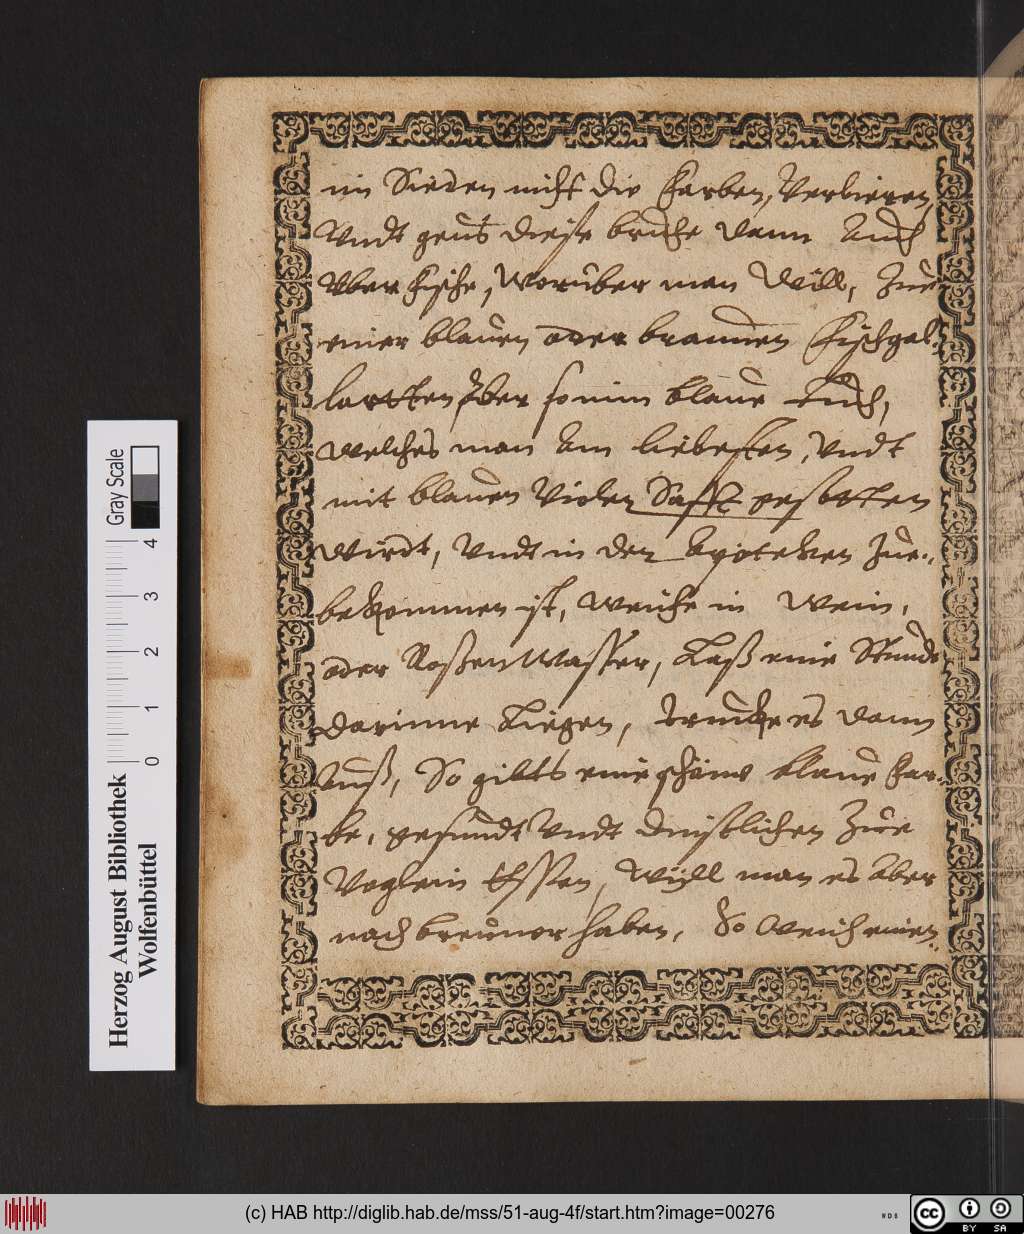 im Sieden nicht die Farben, Verlieren,
Vndt geus dieße bruhe dann Auch
Vber Fische, Worüber man Will, Zue
einer blauen oder braunen Fischgal-
lartten, Aber so nim blaue Tuch,
welches man Am liebesten, Vndt
mit blauen Violen Safft gesotten
Wirdt, Vndt in den Apoteken Zue-
bekommen ist, Weiche in Wein,
oder Roßen Wasser, Laß eine Stunde
darinne Liegen, drucke es dann
Auß, So gibts eine schöne blaue Far-
be, gesundt Vndt dinstlichen Zue
Essen, Will man es Aber
nach breuner haben, So Weich einen
Herzog August Bibliothek
Wolfenbüttel
Gray Scale
0 1 2 3 4
(c) HAB http://diglib.hab.de/mss/51-aug-4f/start.htm?image=00276
cc BY SA